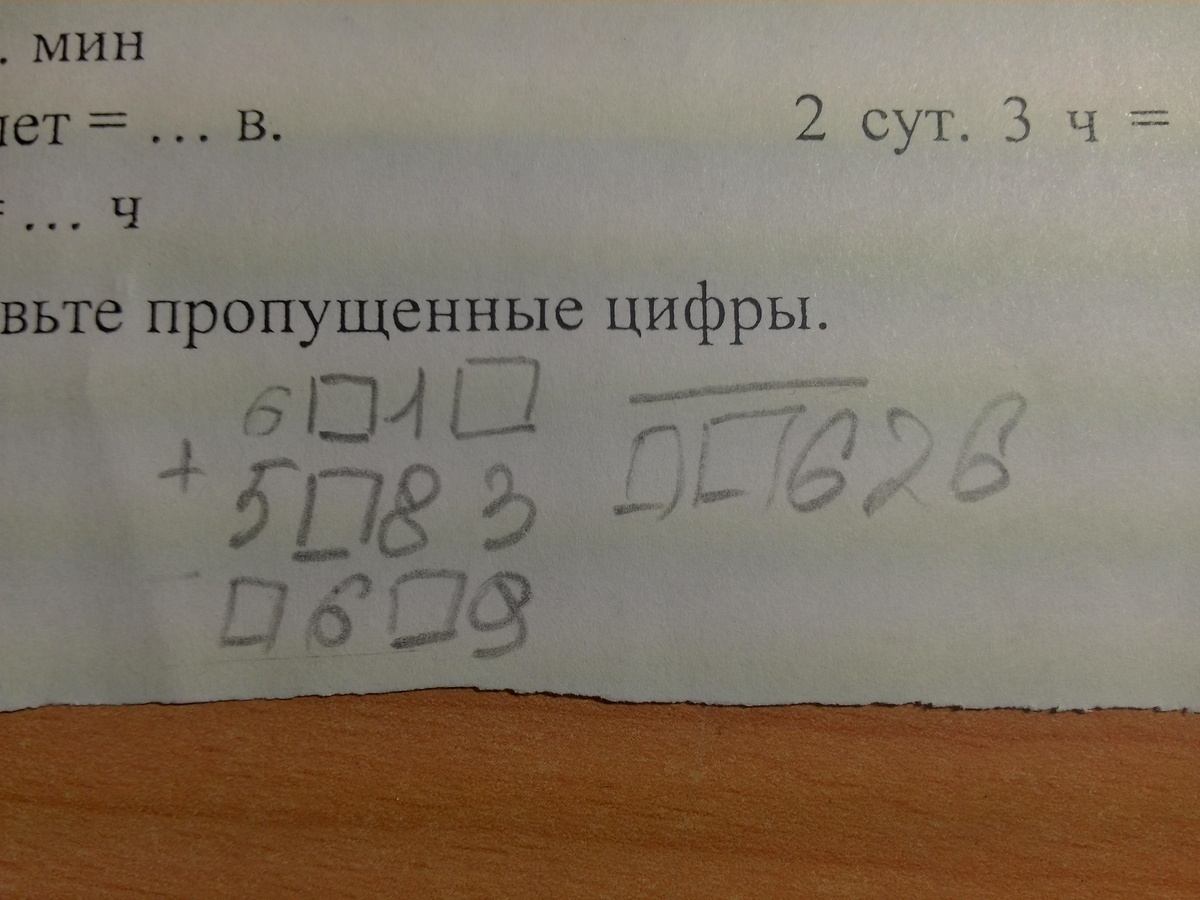 . мин
лет = ... в.
2 сут. 3 ч =
= ... ч
вьте пропущенные цифры.
6□1□
+ 5□83
□6□9
□□626